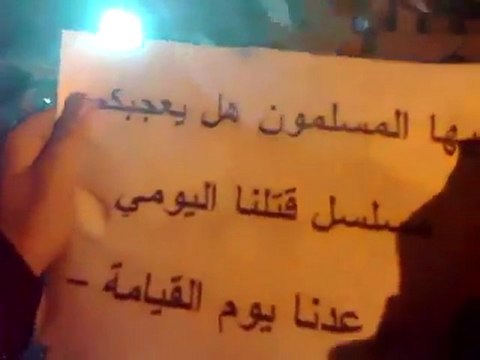 يها المسلمون هل يعجبكم
مسلسل قتلنا اليومي
عدنا يوم القيامة -